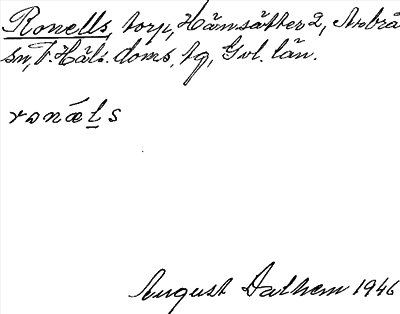 Ronells, torp, Hämsätter 2, Arbrå
sn, V. Häls. doms. tg, Gvl. län.
ronǽļs
August Dalhem 1946